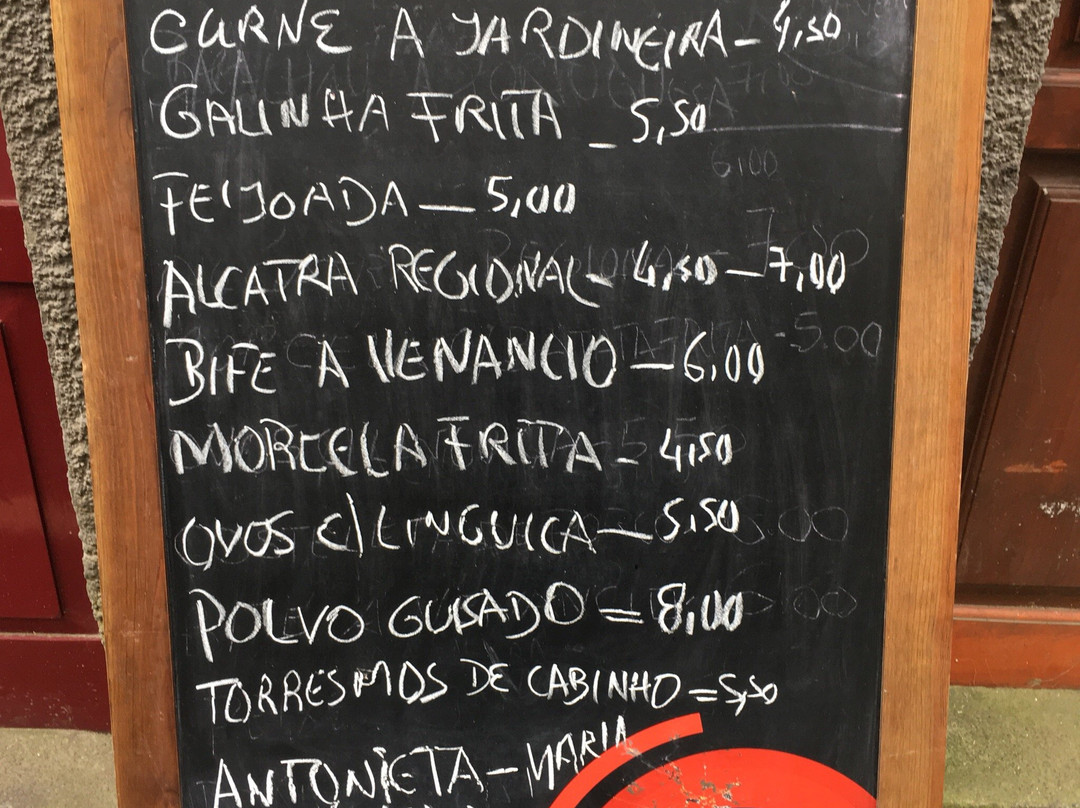 CARNE A JARDINEIRA - 4,50
GALINHA FRITA - 5,50
6,00
FEIJOADA - 5,00
ALCATRA REGIONAL - 4,50 - 7,00
BIFE A VENANCIO - 6,00
-5.00
MORCELA FRITA - 4,50
OVOS C/ LINGUICA - 5,50
POLVO GUISADO = 8,00
TORRESMOS DE CABINHO = 5,50
ANTONIETA - MARIA